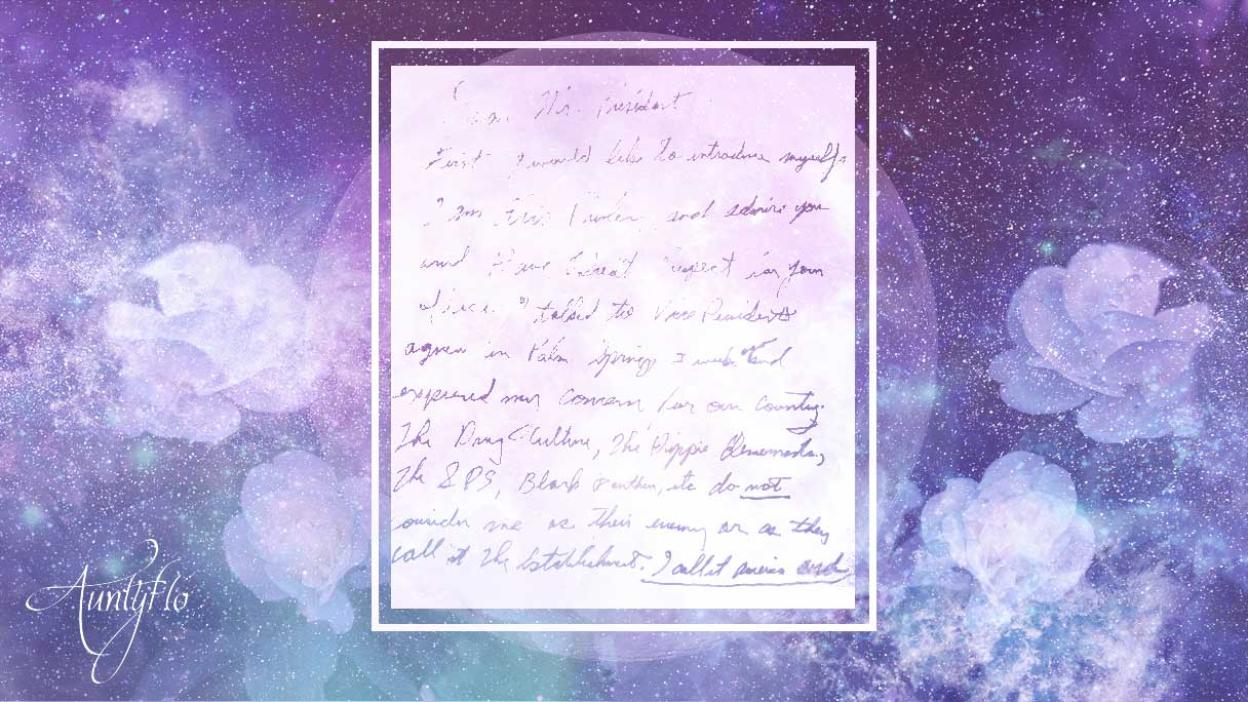 Dear Mr. President
First I would like to introduce myself.
I am Elvis Presley and admire you
and Have Great Respect for your
office. I talked to Vice President
agnew in Palm Springs 3 weeks and
expressed my concern for our country.
The Drug Culture, The Hippie Elements,
The SDS, Black Panthers, etc do not
consider me as their enemy or as they
call it The Establishment. I call it america and
AuntyFlo